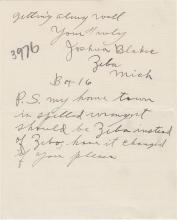 getting along well
Your Truly
3976
Joshua Blake
Ziba
Mich
Box 16
P.S. my home town
is spelled wrong it
should be Ziba instead
of Zibo, have it changed
if you please